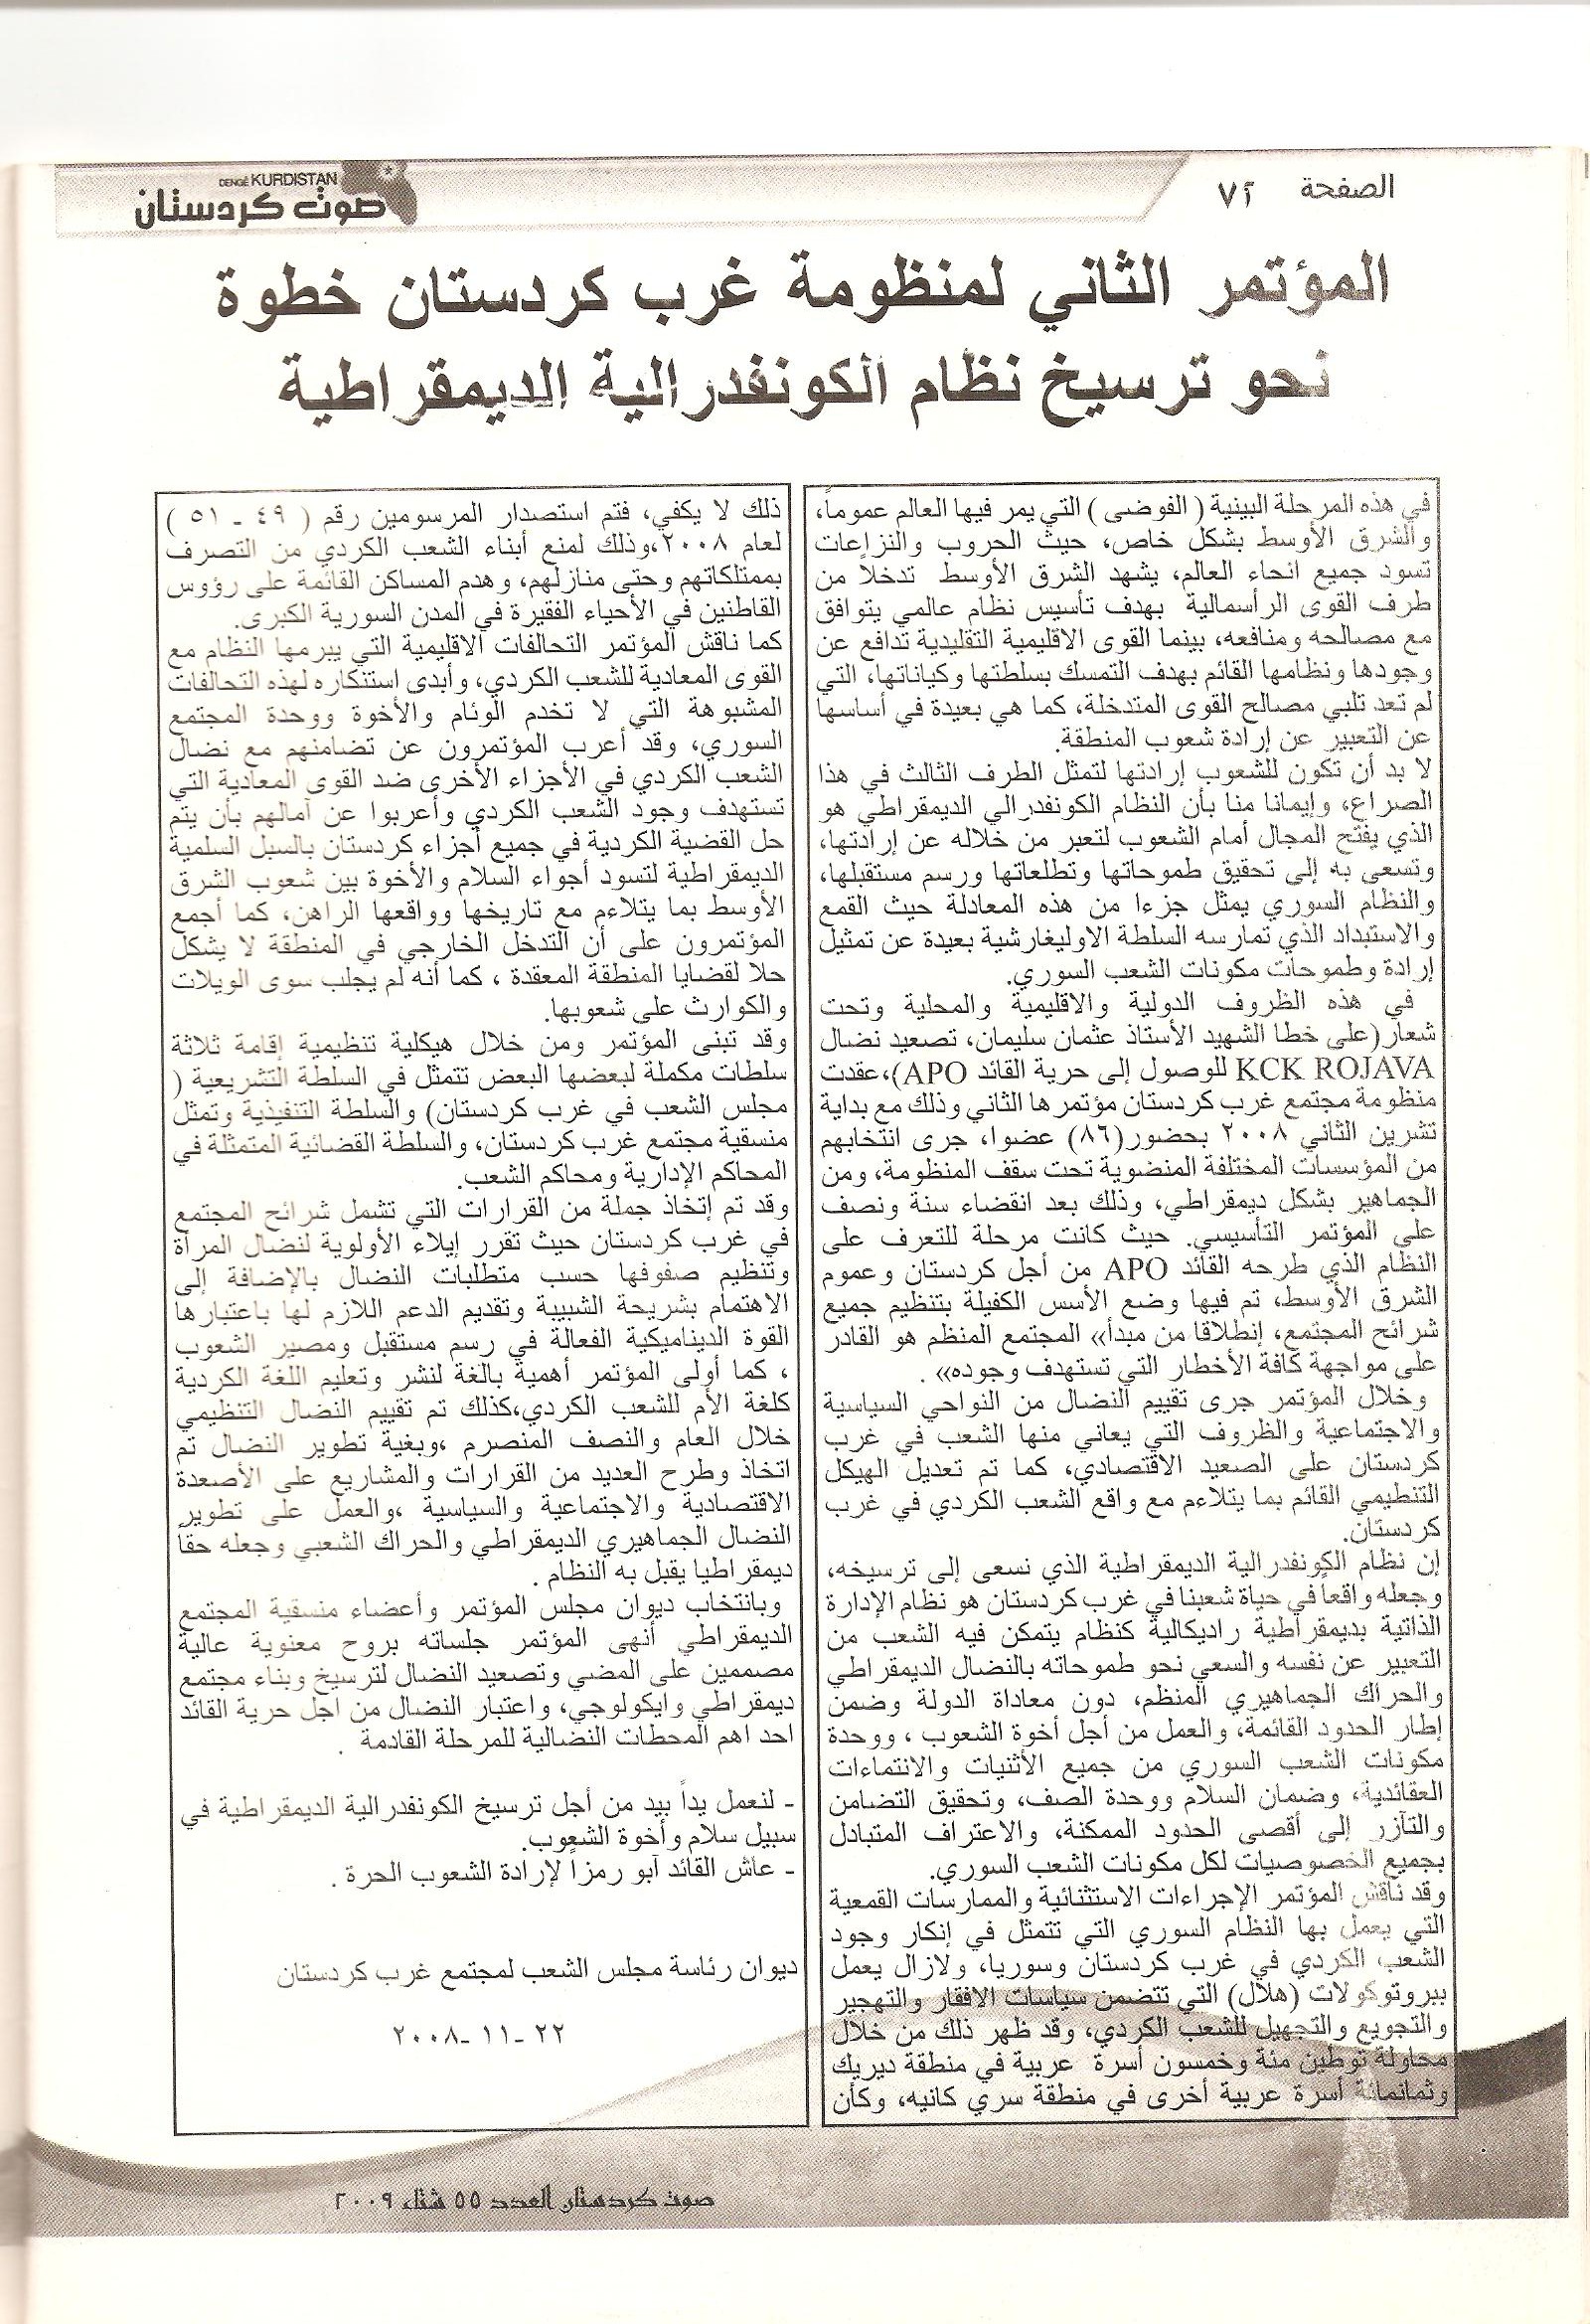 الصفحة ٧٢
DENGÊ KURDISTAN
صوت كردستان
المؤتمر الثاني لمنظومة غرب كردستان خطوة
نحو ترسيخ نظام الكونفدرالية الديمقراطية
في هذه المرحلة البينية ( الفوضى ) التي يمر فيها العالم عموماً،
والشرق الأوسط بشكل خاص، حيث الحروب والنزاعات
تسود جميع انحاء العالم، يشهد الشرق الأوسط تدخلاً من
طرف القوى الرأسمالية بهدف تأسيس نظام عالمي يتوافق
مع مصالحه ومنافعه، بينما القوى الاقليمية التقليدية تدافع عن
وجودها ونظامها القائم بهدف التمسك بسلطتها وكياناتها، التي
لم تعد تلبي مصالح القوى المتدخلة، كما هي بعيدة في أساسها
عن التعبير عن إرادة شعوب المنطقة.
لا بد أن تكون للشعوب إرادتها لتمثل الطرف الثالث في هذا
الصراع، وإيمانا منا بأن النظام الكونفدرالي الديمقراطي هو
الذي يفتح المجال أمام الشعوب لتعبر من خلاله عن إرادتها،
وتسعى به إلى تحقيق طموحاتها وتطلعاتها ورسم مستقبلها،
والنظام السوري يمثل جزءا من هذه المعادلة حيث القمع
والاستبداد الذي تمارسه السلطة الاوليغارشية بعيدة عن تمثيل
إرادة وطموحات مكونات الشعب السوري.
في هذه الظروف الدولية والاقليمية والمحلية وتحت
شعار(على خطا الشهيد الأستاذ عثمان سليمان، تصعيد نضال
KCK ROJAVA للوصول إلى حرية القائد APO)،عقدت
منظومة مجتمع غرب كردستان مؤتمرها الثاني وذلك مع بداية
تشرين الثاني ٢٠٠٨ بحضور(٨٦) عضوا، جرى انتخابهم
من المؤسسات المختلفة المنضوية تحت سقف المنظومة، ومن
الجماهير بشكل ديمقراطي، وذلك بعد انقضاء سنة ونصف
على المؤتمر التأسيسي. حيث كانت مرحلة للتعرف على
النظام الذي طرحه القائد APO من أجل كردستان وعموم
الشرق الأوسط، تم فيها وضع الأسس الكفيلة بتنظيم جميع
شرائح المجتمع، إنطلاقا من مبدأ» المجتمع المنظم هو القادر
على مواجهة كافة الأخطار التي تستهدف وجوده» .
وخلال المؤتمر جرى تقييم النضال من النواحي السياسية
والاجتماعية والظروف التي يعاني منها الشعب في غرب
كردستان على الصعيد الاقتصادي، كما تم تعديل الهيكل
التنظيمي القائم بما يتلاءم مع واقع الشعب الكردي في غرب
كردستان.
إن نظام الكونفدرالية الديمقراطية الذي نسعى إلى ترسيخه،
وجعله واقعاً في حياة شعبنا في غرب كردستان هو نظام الإدارة
الذاتية بديمقراطية راديكالية كنظام يتمكن فيه الشعب من
التعبير عن نفسه والسعي نحو طموحاته بالنضال الديمقراطي
والحراك الجماهيري المنظم، دون معاداة الدولة وضمن
إطار الحدود القائمة، والعمل من أجل أخوة الشعوب ، ووحدة
مكونات الشعب السوري من جميع الأثنيات والانتماءات
العقائدية، وضمان السلام ووحدة الصف، وتحقيق التضامن
والتآزر إلى أقصى الحدود الممكنة، والاعتراف المتبادل
بجميع الخصوصيات لكل مكونات الشعب السوري.
وقد ناقش المؤتمر الإجراءات الاستثنائية والممارسات القمعية
التي يعمل بها النظام السوري التي تتمثل في إنكار وجود
الشعب الكردي في غرب كردستان وسوريا، ولازال يعمل
ببروتوكولات (هلال) التي تتضمن سياسات الافقار والتهجير
والتجويع والتجهيل للشعب الكردي، وقد ظهر ذلك من خلال
محاولة توطين مئة وخمسون أسرة عربية في منطقة ديريك
وثمانمائة أسرة عربية أخرى في منطقة سري كانيه، وكأن
ذلك لا يكفي، فتم استصدار المرسومين رقم ( ٤٩ - ٥١ )
لعام ٢٠٠٨،وذلك لمنع أبناء الشعب الكردي من التصرف
بممتلكاتهم وحتى منازلهم، وهدم المساكن القائمة على رؤوس
القاطنين في الأحياء الفقيرة في المدن السورية الكبرى.
كما ناقش المؤتمر التحالفات الاقليمية التي يبرمها النظام مع
القوى المعادية للشعب الكردي، وأبدى استنكاره لهذه التحالفات
المشبوهة التي لا تخدم الوئام والأخوة ووحدة المجتمع
السوري، وقد أعرب المؤتمرون عن تضامنهم مع نضال
الشعب الكردي في الأجزاء الأخرى ضد القوى المعادية التي
تستهدف وجود الشعب الكردي وأعربوا عن آمالهم بأن يتم
حل القضية الكردية في جميع أجزاء كردستان بالسبل السلمية
الديمقراطية لتسود أجواء السلام والأخوة بين شعوب الشرق
الأوسط بما يتلاءم مع تاريخها وواقعها الراهن، كما أجمع
المؤتمرون على أن التدخل الخارجي في المنطقة لا يشكل
حلا لقضايا المنطقة المعقدة ، كما أنه لم يجلب سوى الويلات
والكوارث على شعوبها.
وقد تبنى المؤتمر ومن خلال هيكلية تنظيمية إقامة ثلاثة
سلطات مكملة لبعضها البعض تتمثل في السلطة التشريعية (
مجلس الشعب في غرب كردستان) والسلطة التنفيذية وتمثل
منسقية مجتمع غرب كردستان، والسلطة القضائية المتمثلة في
المحاكم الإدارية ومحاكم الشعب.
وقد تم إتخاذ جملة من القرارات التي تشمل شرائح المجتمع
في غرب كردستان حيث تقرر إيلاء الأولوية لنضال المرأة
وتنظيم صفوفها حسب متطلبات النضال بالإضافة إلى
الاهتمام بشريحة الشبيبة وتقديم الدعم اللازم لها باعتبارها
القوة الديناميكية الفعالة في رسم مستقبل ومصير الشعوب
، كما أولى المؤتمر أهمية بالغة لنشر وتعليم اللغة الكردية
كلغة الأم للشعب الكردي،كذلك تم تقييم النضال التنظيمي
خلال العام والنصف المنصرم ،وبغية تطوير النضال تم
اتخاذ وطرح العديد من القرارات والمشاريع على الأصعدة
الاقتصادية والاجتماعية والسياسية ،والعمل على تطوير
النضال الجماهيري الديمقراطي والحراك الشعبي وجعله حقاً
ديمقراطيا يقبل به النظام .
وبانتخاب ديوان مجلس المؤتمر وأعضاء منسقية المجتمع
الديمقراطي أنهى المؤتمر جلساته بروح معنوية عالية
مصممين على المضي وتصعيد النضال لترسيخ وبناء مجتمع
ديمقراطي وايكولوجي، واعتبار النضال من اجل حرية القائد
احد اهم المحطات النضالية للمرحلة القادمة .
- لنعمل يداً بيد من أجل ترسيخ الكونفدرالية الديمقراطية في
سبيل سلام وأخوة الشعوب.
- عاش القائد آبو رمزاً لإرادة الشعوب الحرة .
ديوان رئاسة مجلس الشعب لمجتمع غرب كردستان
٢٢ -١١ -٢٠٠٨
صوت كردستان العدد ٥٥ شتاء ٢٠٠٩